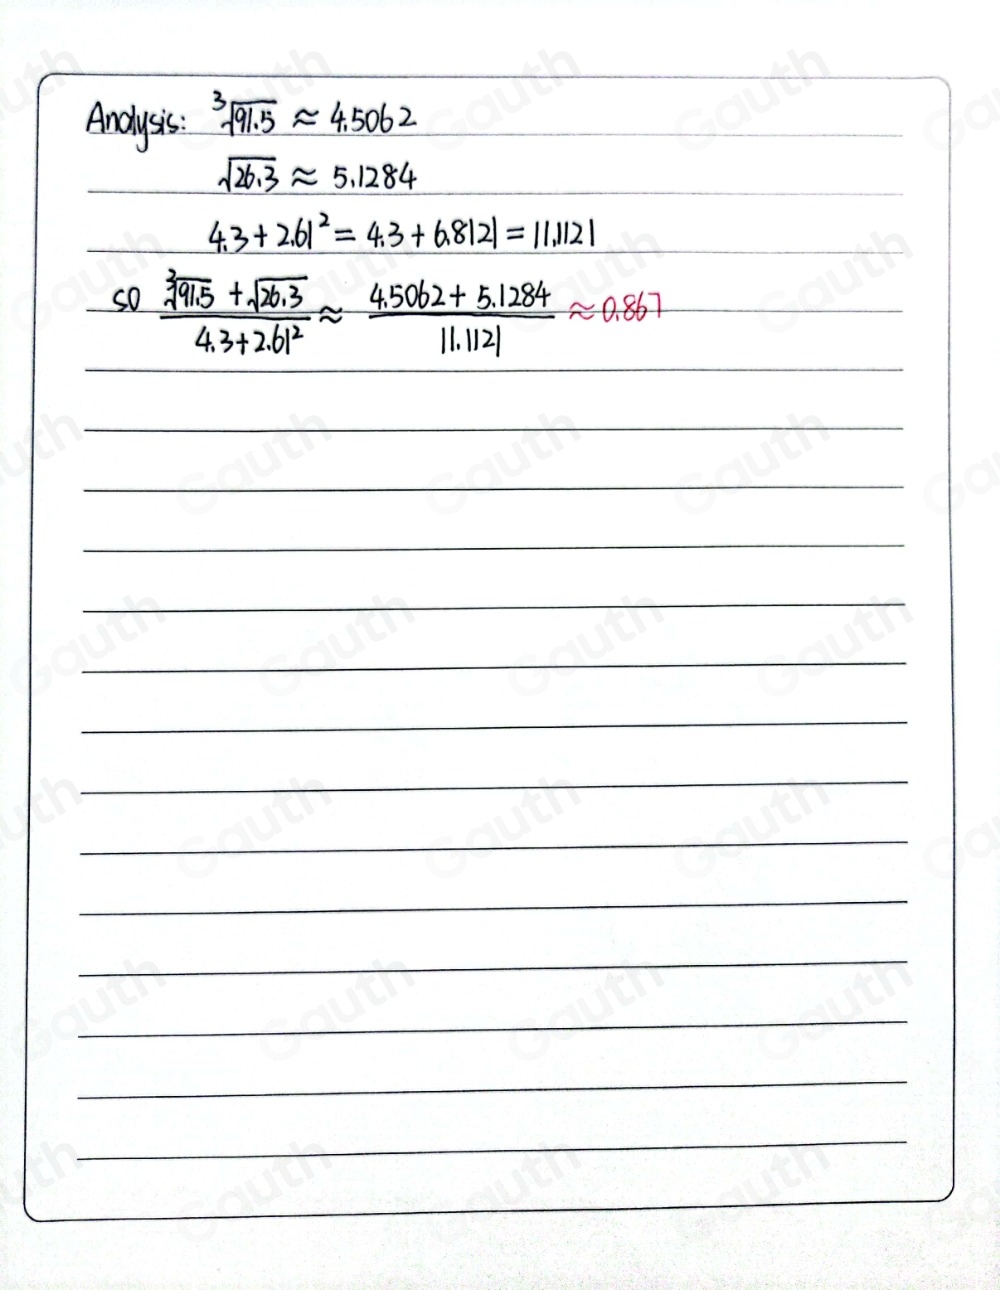 Analysis: ∛91.5 ≈ 4.5062
√26.3 ≈ 5.1284
4.3 + 2.61² = 4.3 + 6.8121 = 11.1121
so (∛91.5 + √26.3) / (4.3 + 2.61²) ≈ (4.5062 + 5.1284) / 11.1121 ≈ 0.867